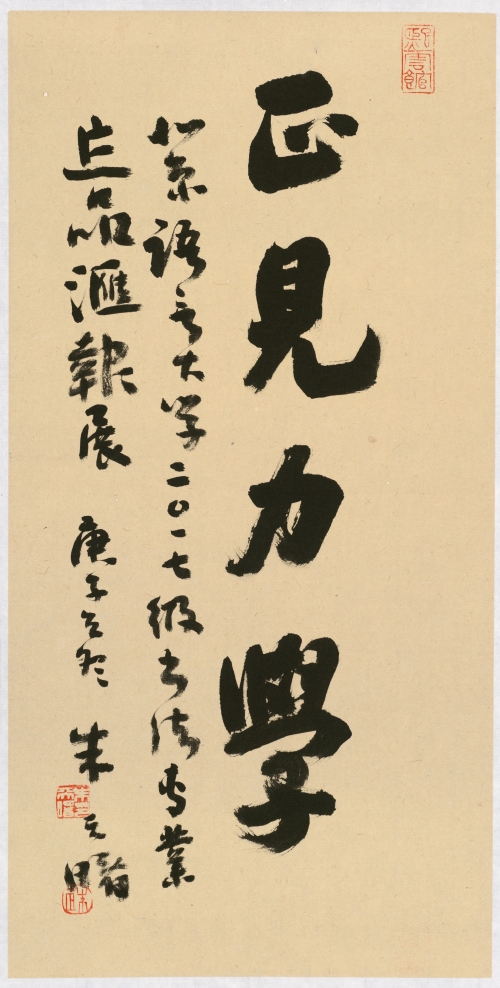 正見力學
北京語言大学二〇一七級书法专業
作品滙報展 庚子之冬 朱天曙